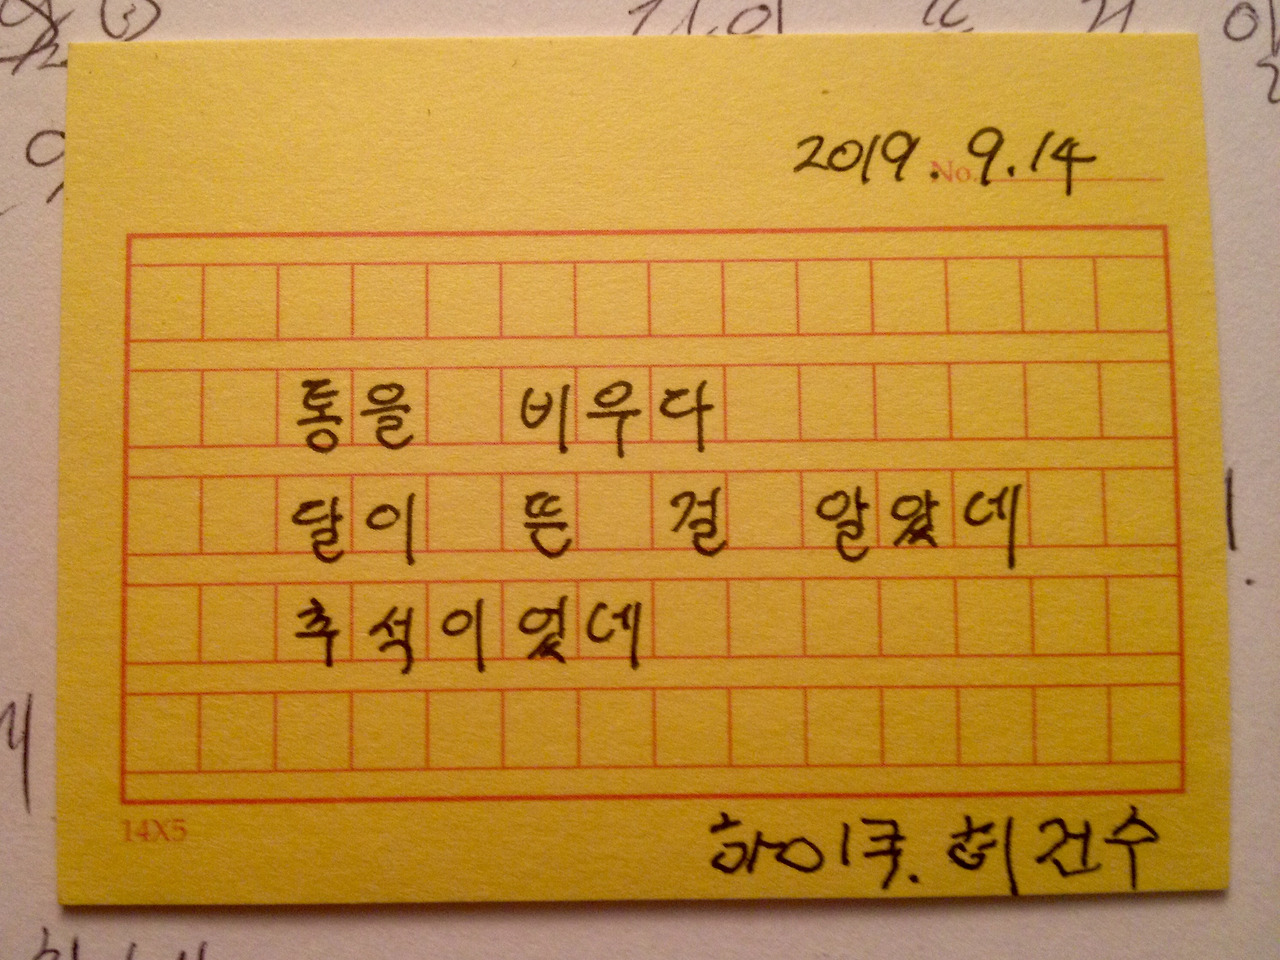 2019.9.14
No.
통을 비우다
달이 뜬 걸 알았네
추석이었네
14X5
하이쿠. 허건수